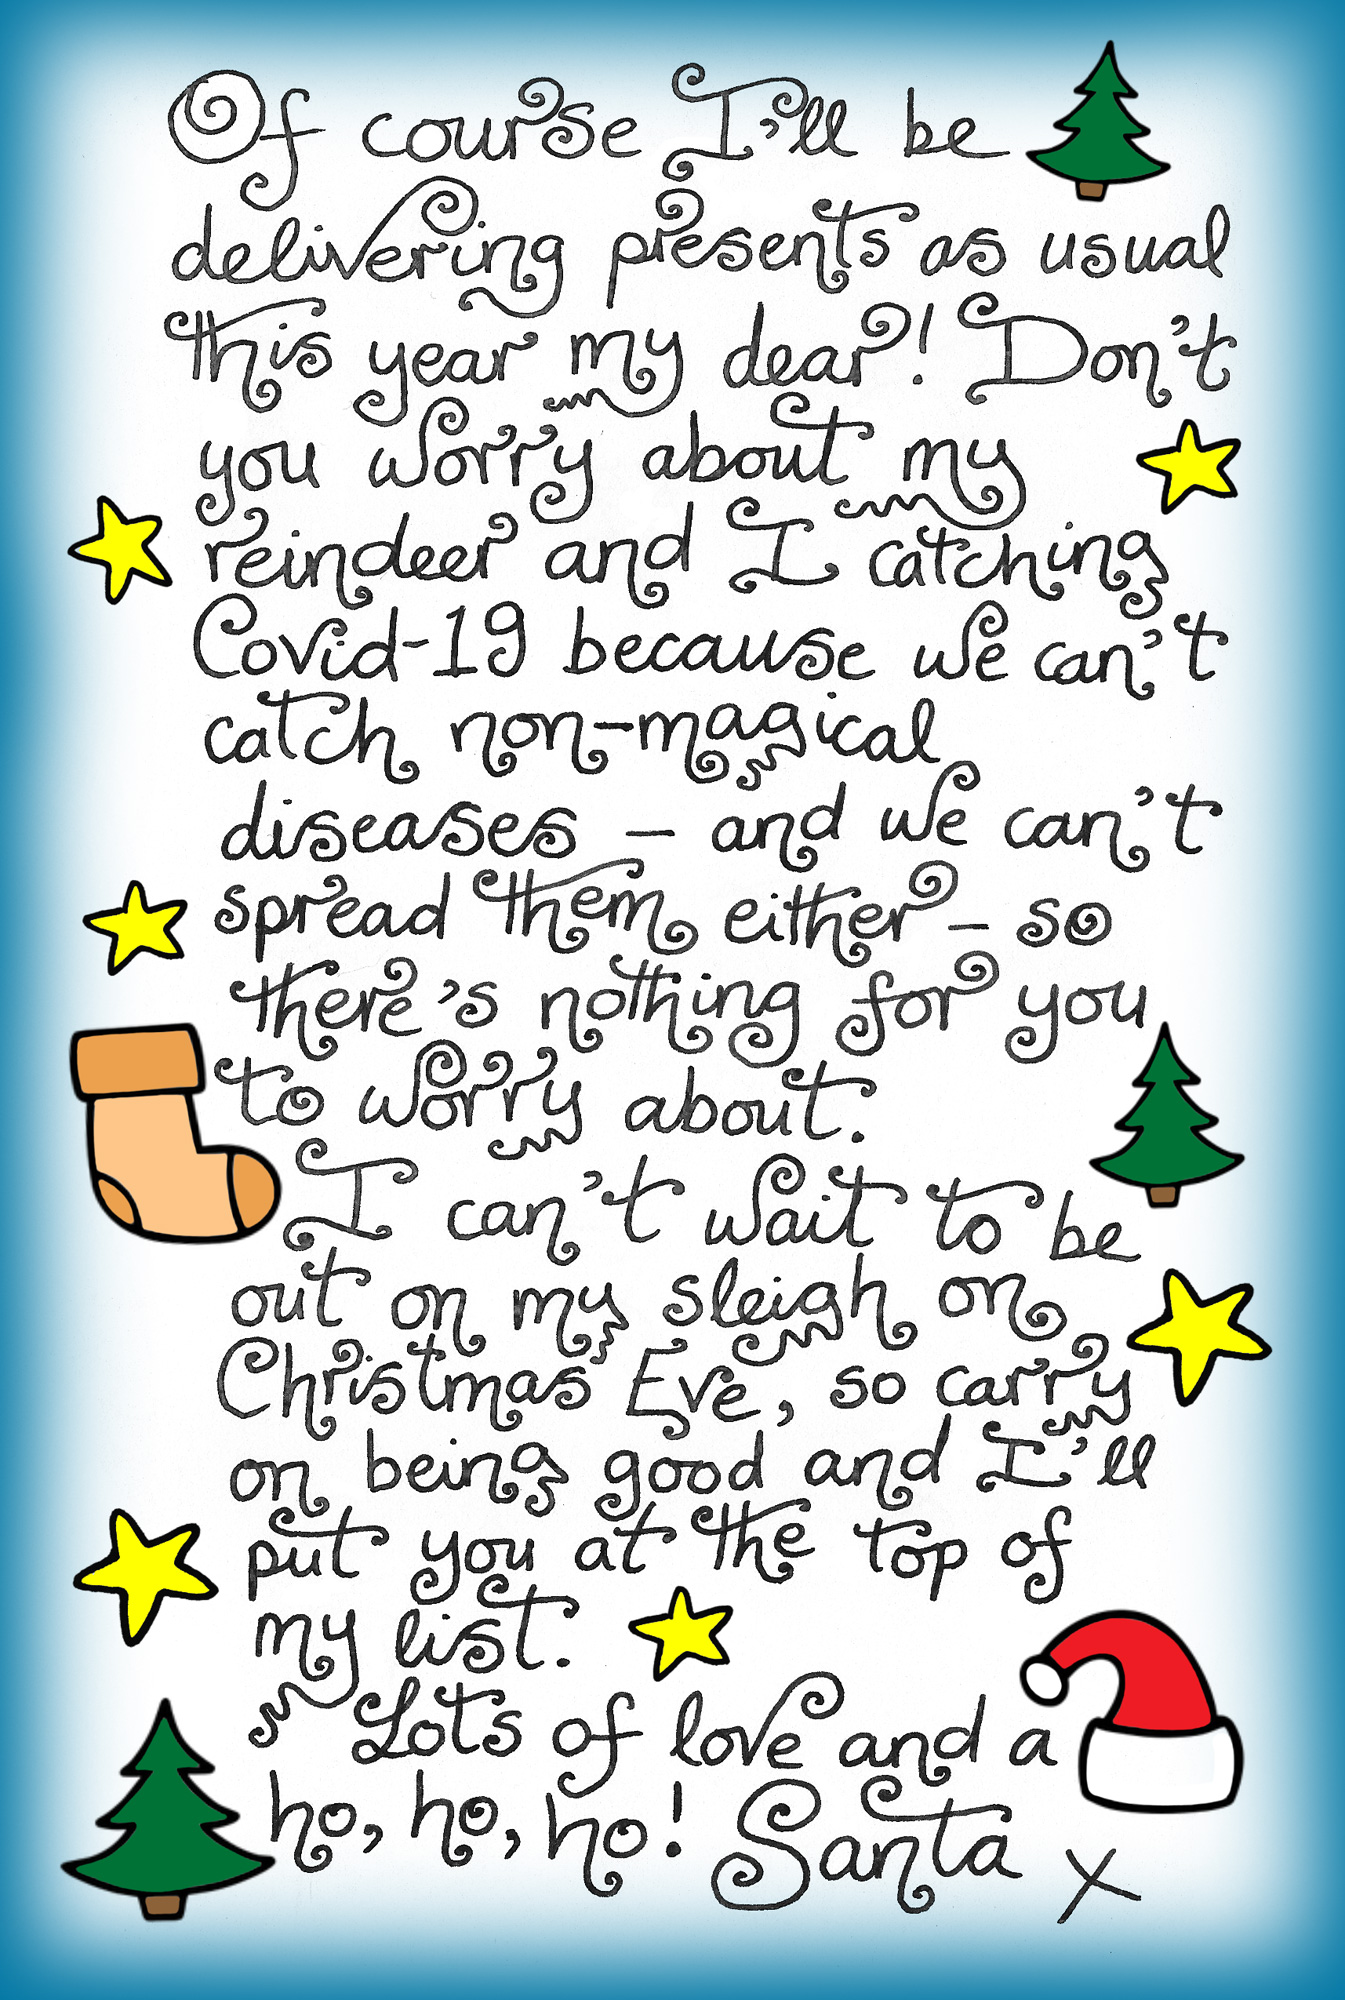 Of course I'll be
delivering presents as usual
this year my dear! Don't
you worry about my
reindeer and I catching
Covid-19 because we can't
catch non-magical
diseases – and we can't
spread them either – so
there's nothing for you
to worry about.
I can't wait to be
out on my sleigh on
Christmas Eve, so carry
on being good and I'll
put you at the top of
my list.
Lots of love and a
ho, ho, ho! Santa x